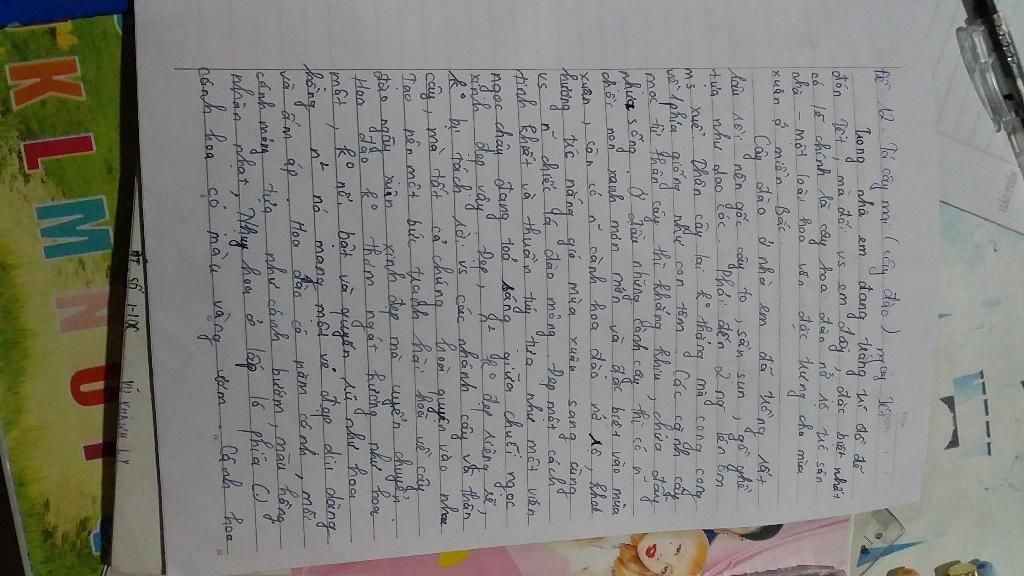 Đề 12. Tả cây mi (cây đào)
Trong nhà em đang trang trí để
đón Tết, mà đối vs em đấy, đặc biệt nhất
có lẽ chính là cây hoa đào nở rộ trc sân
nhà - một loài hoa vốn đặc trưng cho mùa
xuân ở miền Bắc.
Cây đào ở nhà em đã trồng rất
lâu rồi nên gốc cây to, sần sùi, gồ ghề
tựa như da cóc. Phải đến 2 ng lớn ôm
ms xuể. Thân cây lại k thẳng mà cong cong
về phía giống như con tôm. Các cành cây
mọc từ thân cây thì khẳng khiu, chứa đầy
nhựa sống. Ở đầu những cành cây thì có n~
chồi non xanh mơn mởn và đặc biệt vào mùa
xuân, còn có n~ cành hoa đào nở rộ, khoe
hương sắc nắng gió mùa xuân sang cùng
vs n~ chiếc lá đào mỏng. Đẹp một cách
tinh khiết và thuần túy tựa như một viên
ngọc chây đang toả sáng giữa chuỗi ngọc
xinh đẹp vậy. Đẹp, n² ko đẹp riêng lẽ,
k bị tách rời vs các nhánh cây và thân
cây, mà tất cả chúng hoà quyện vào nhau
Tạo nên một bức tranh hài hoà về cây
đào ngày xuân xinh đẹp mà uyển chuyển.
Hoa đào ko thơm ngát hương như hoa
mất, ko nổi bật và quyến rũ như hoa
hồng n² nó mang một vẻ đẹp dịu dàng
và ấm áp. Hoa đào có năm cánh, mỗi
cánh mỏng tựa như cánh bướm, màu hồng
nhàn nhạt, Nhụy hoa ở lấp ló phía (.)
cánh hoa có màu vàng ươm. Cánh hoa
K L M N
Đề số 1-100